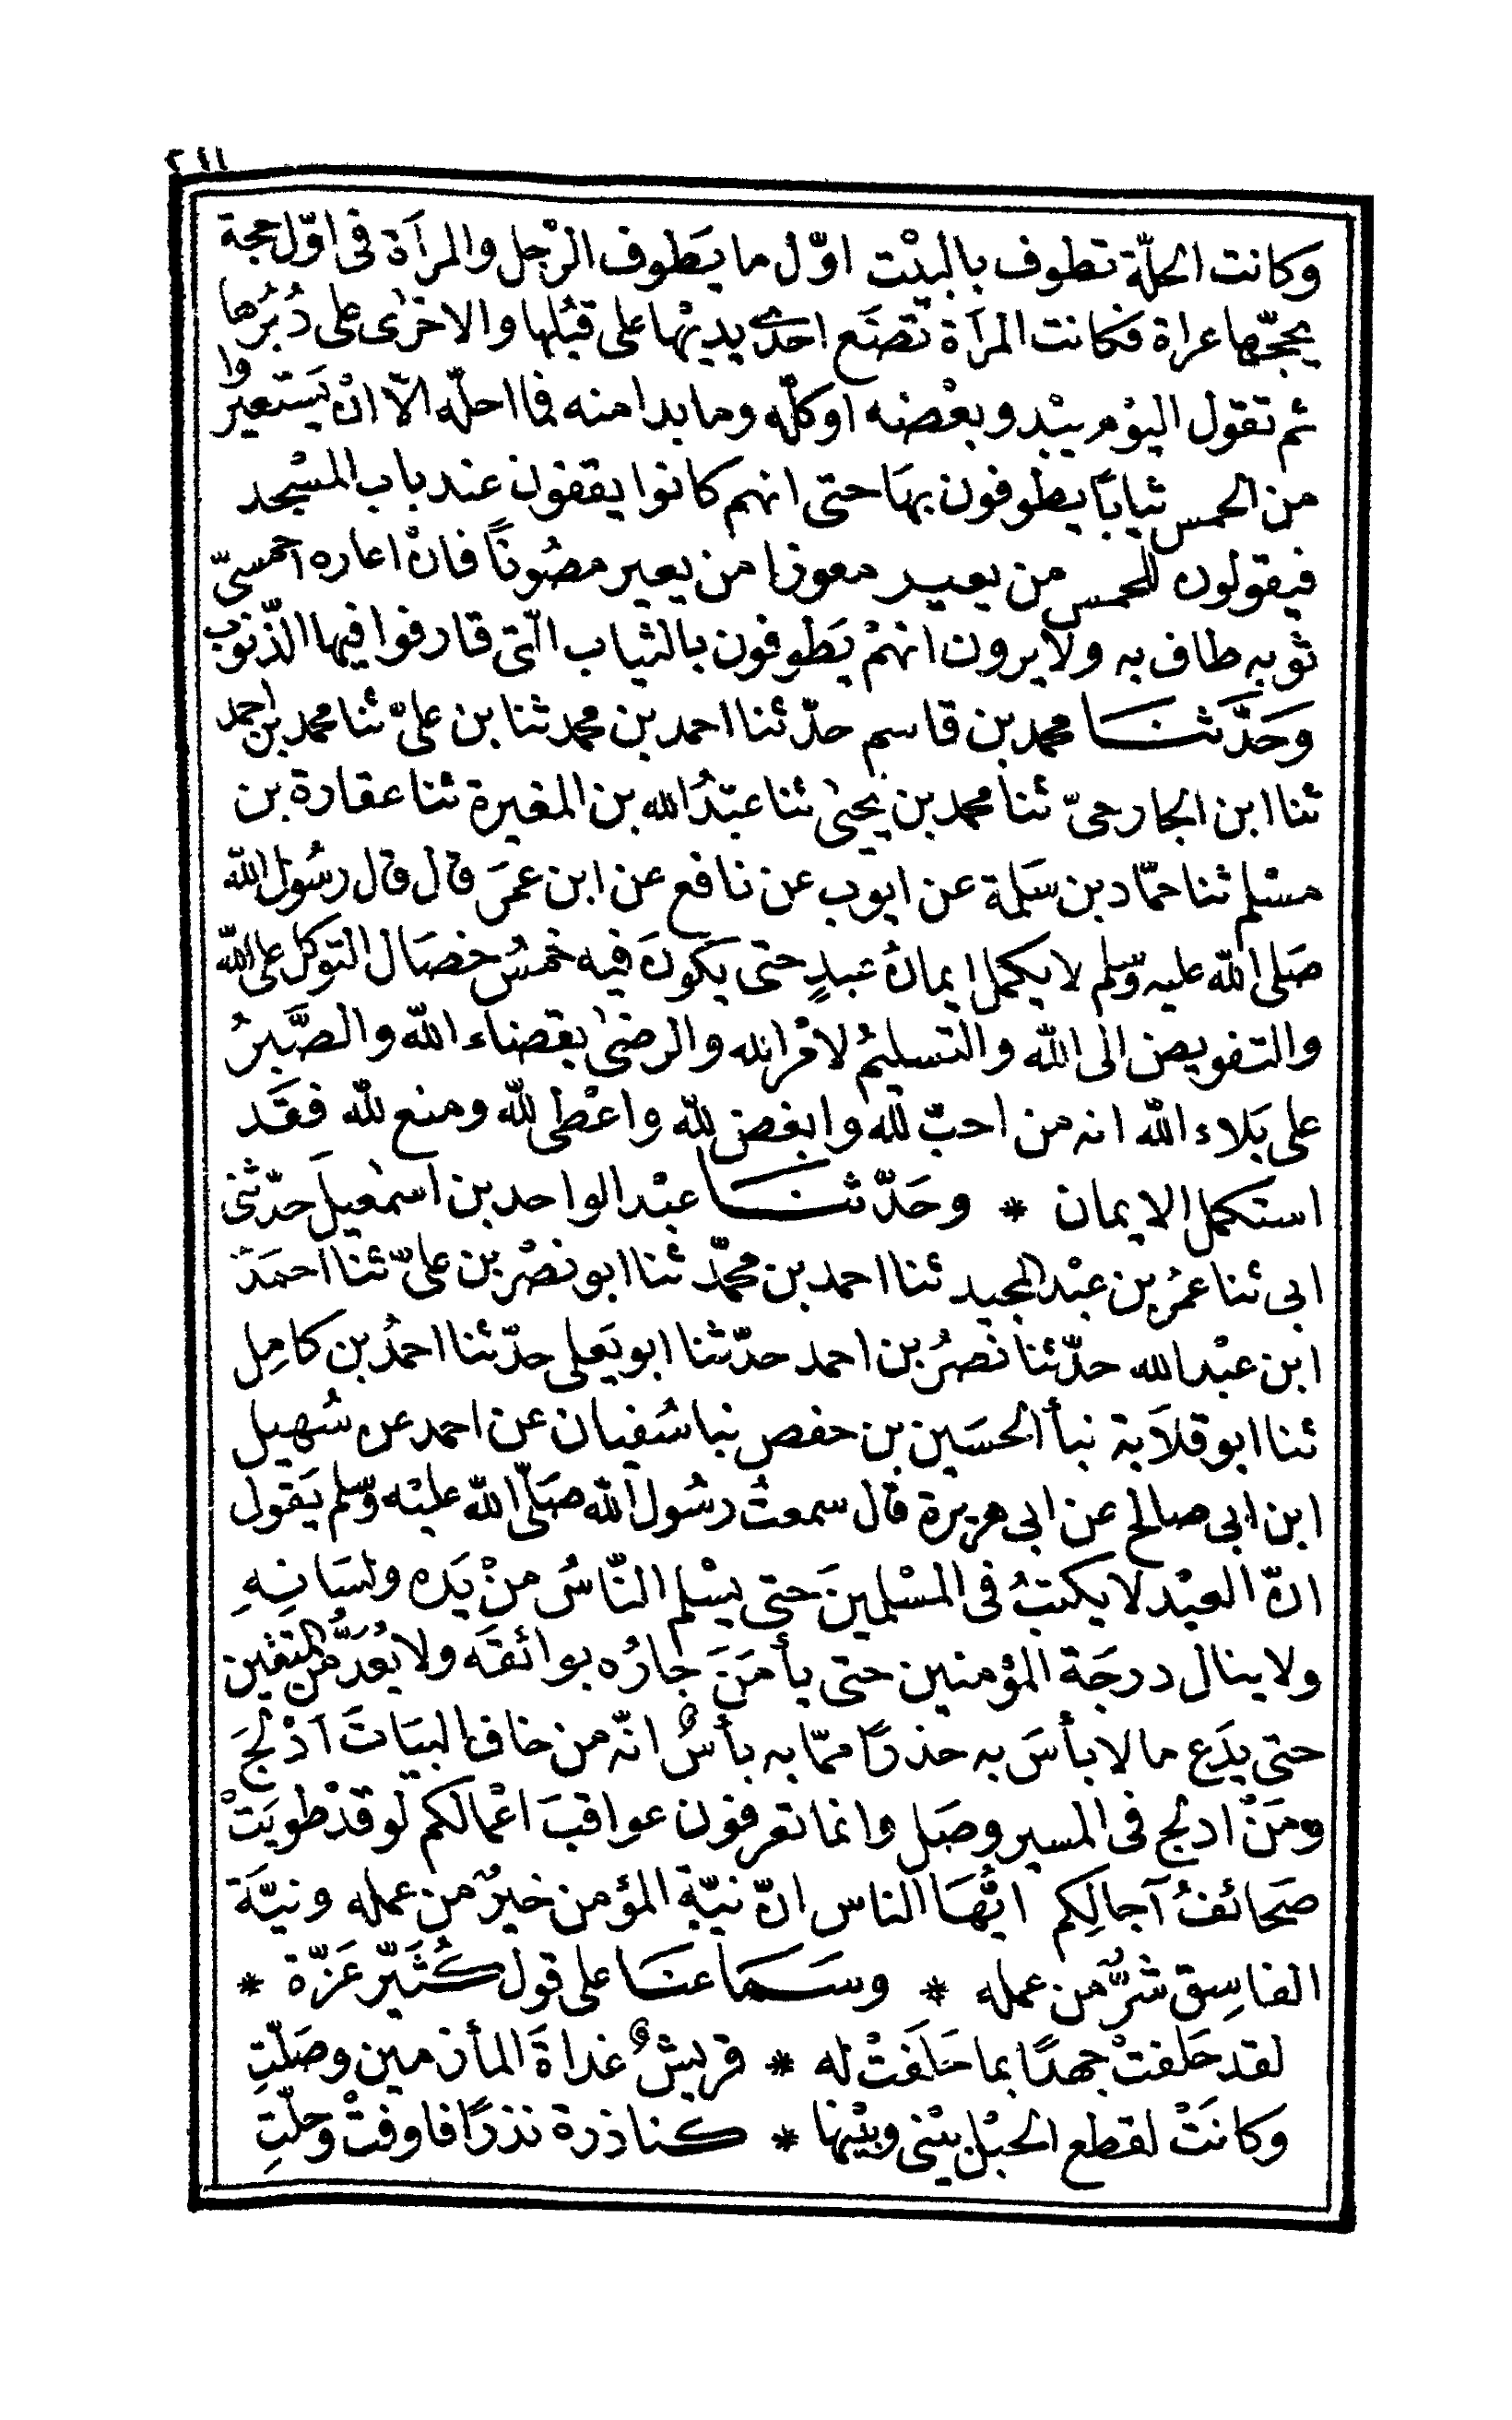 ٢٤١
وكانت الحلّة تطوف بالبيْت اوّل ما يَطوف الرّجل والمرأة فى اوّل حجة
يحجّها عراة فكانت المرأة تضَع احدى يديْها على قبُلها والاخرٰى على دُبُرها
ثم تقول اليوْم يبْدو بعْضه او كلّه وما بدا منه فما احلّه الّا انْ يَسْتعيروا
من الحمس ثياباً يطوفون بهَا حتى انهم كانوا يقفون عند باب المسْجد
فيقولون للحمس من يعيـر معوزا من يعير مصُوناً فانْ اعاره احمسىّ
ثوبه طاف به ولا يرون انهمْ يَطوفون بالثياب الّتى قارفوا فيها الذّنوب
وَحَدَّثنـا محمد بن قاسم حدّثنا احمد بن محمد ثنا بن علىّ ثنا محمد بن احمد
ثنا ابن الجارحىّ ثنا محمد بن يحيٰى ثنا عبْدُالله بن المغيرة ثنا عقارة بن
مسْلم ثنا حمّاد بن سَلمة عن ايوب عن نافع عن ابن عمَر قال قال رسُول الله
صَلى الله عليه وسّلم لا يكمل ايمانُ عبدٍ حتى يَكونَ فيه خمْسُ خصَال التوكل على الله
والتفويض الى الله والتسليمُ لامْر الله والرضٰى بقضاء الله والصَّبرُ
على بَلاء الله انه من احبّ لله وابغض لله واعْطى لله ومنع لله فقَد
استكمل الايمان * وحَدّثنـا عبْدالواحد بن اسمٰعيلَ حدّثنى
ابى ثنا عمُر بن عبْدالمجيد ثنا احمد بن محمّد ثنا ابو نصْر بن علىّ ثنا احمَد
ابن عبْدالله حدّثنا نصرُ بن احمد حدّثنا ابو يَعلى حدّثنا احمدُ بن كامِل
ثنا ابو قلَابة نبأ الحسَين بن حفص نبا سُفيان عن احمد عن سُهيل
ابن ابى صالح عن ابى هريرة قال سمعتُ رسُول الله صَلّى الله عليْه وسّلم يَقول
انّ العبْد لا يكتبُ فى المسْلمينَ حتى يسْلم النّاسُ منْ يَده ولسَانِهِ
ولا ينال درجَة المؤمنين حتى يأمَنَ جارُه بوائقَه ولا يُعَدُّ من المتقين
حتى يدَع ما لا بأسَ به حذرًا ممّا به بأسٌ انّه من خاف البيَاتَ ادْلجَ
ومَنْ ادلج فى المسير وصَل وانما تعرفون عواقبَ اعْمالكم لو قدْ طويَتْ
صَحائفُ آجالِكم ايُّهَا الناس انّ نيّة المؤمن خيرٌ من عمله ونيَّة
الفاسِق شرٌّ من عمله * وسَـمَاعنَـا على قول كُثَيّر عَزّة *
لقد حَلفتْ جهدًا بما حَلَفَتْ له * قريشٌ غداةَ المأزمين وصَلّتِ
وكانَتْ لقطع الحبْل بيْنى وبيْنها * كناذرة نذرًا فاوفتْ وحلّتِ